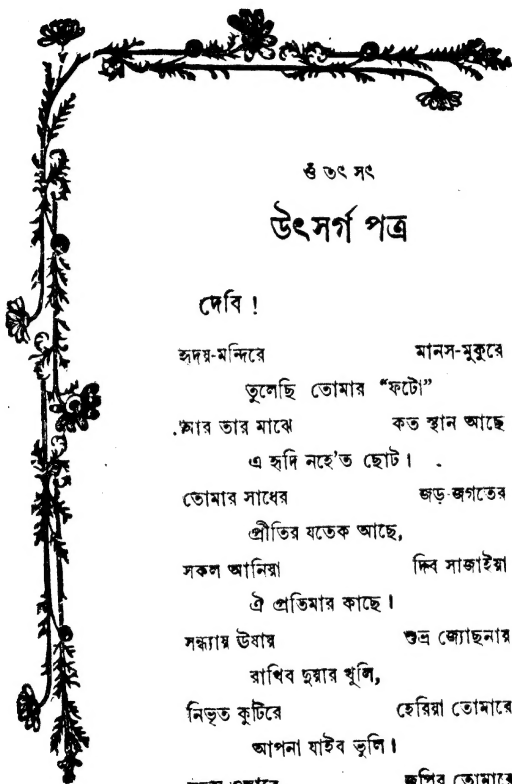 ওঁ তৎ সৎ
উৎসর্গ পত্র
দেবি !
হৃদয়-মন্দিরে মানস-মুকুরে
তুলেছি তোমার “ফটো”
আর তার মাঝে কত স্থান আছে
এ হৃদি নহে'ত ছোট।
তোমার সাধের জড়-জগতের
প্রীতির যতেক আছে,
সকল আনিয়া দিব সাজাইয়া
ঐ প্রতিমার কাছে।
সন্ধ্যায় ঊষায় শুভ্র জ্যোছনায়
রাখিব দুয়ার খুলি,
নিভৃত কুটিরে হেরিয়া তোমারে
আপনা যাইব ভুলি।
জপিব তোমারে